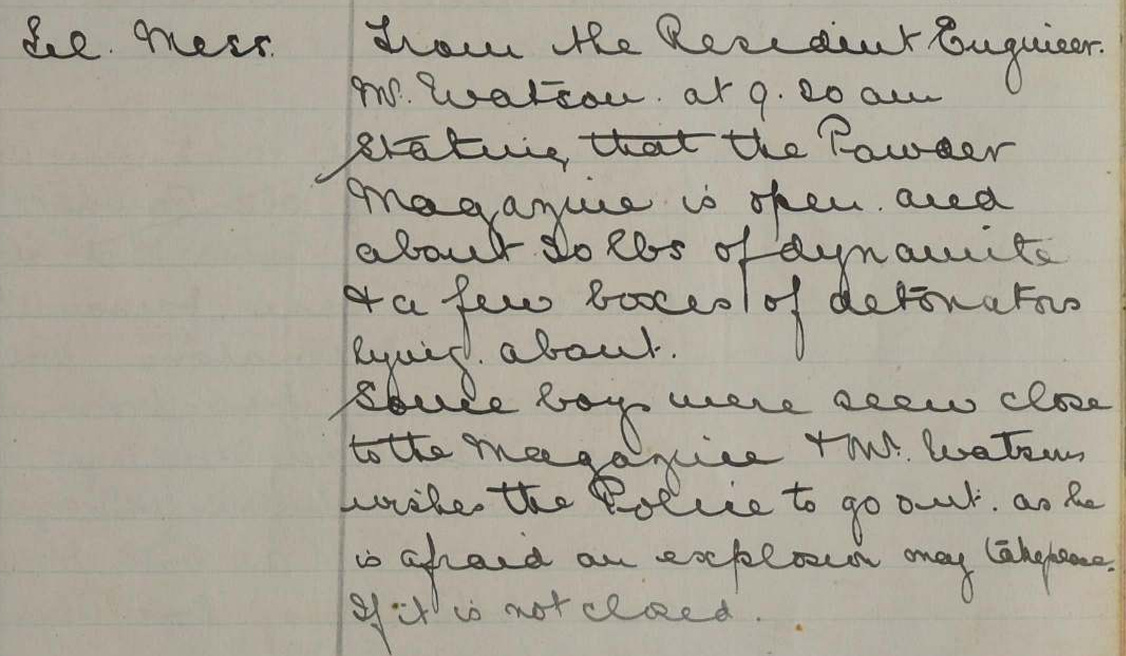 Tel. Mess. From the Resident Engineer.
Mr. Watson. at 9.20 am
stating that the Powder
Magazine is open. and
about 20 lbs of dynamite
& a few boxes of detonators
lying. about.
Some boys were seen close
to the Magazine & Mr. Watson
wishes the Police to go out. as he
is afraid an explosion may take place.
If it is not closed.